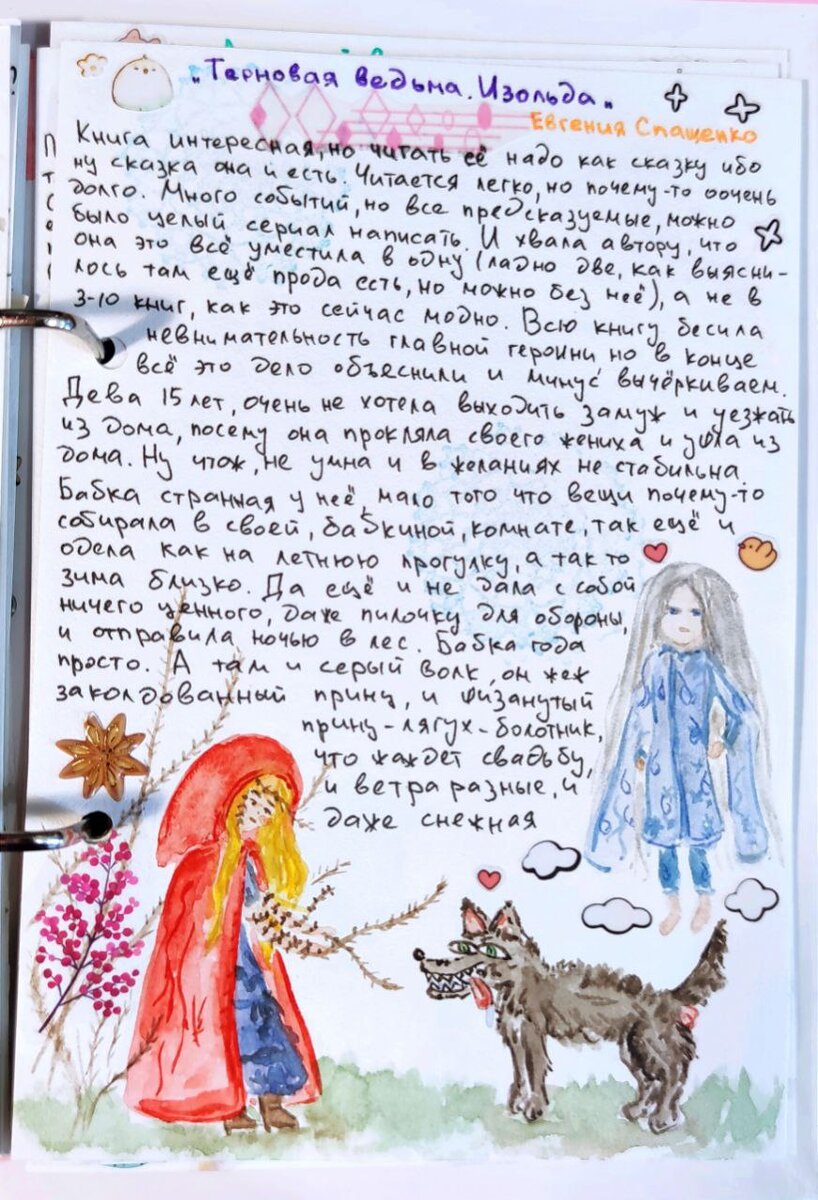 „Терновая ведьма. Изольда„
Евгения Спащенко
Книга интересная, но читать её надо как сказку ибо
ну сказка она и есть. Читается легко, но почему-то оочень
долго. Много событий, но все предсказуемые, можно
было целый сериал написать. И хвала автору, что
она это всё уместила в одну (ладно две, как выясни-
лось там ещё прода есть, но можно без неё), а не в
3-10 книг, как это сейчас модно. Всю книгу бесила
невнимательность главной героини но в конце
всё это дело объяснили и минус вычёркиваем.
Дева 15 лет, очень не хотела выходить замуж и уезжать
из дома, посему она прокляла своего жениха и ушла из
дома. Ну чтож, не умна и в желаниях не стабильна.
Бабка странная у неё, мало того что вещи почему-то
собирала в своей, бабкиной, комнате, так ещё и
одела как на летнюю прогулку, а так то
зима близко. Да ещё и не дала с собой
ничего ценного, даже пилочку для обороны,
и отправила ночью в лес. Бабка года
просто. А там и серый волк, он жеж
заколдованный принц, и шизанутый
принц-лягух-болотник,
что жаждет свадьбу,
и ветра разные, и
даже снежная